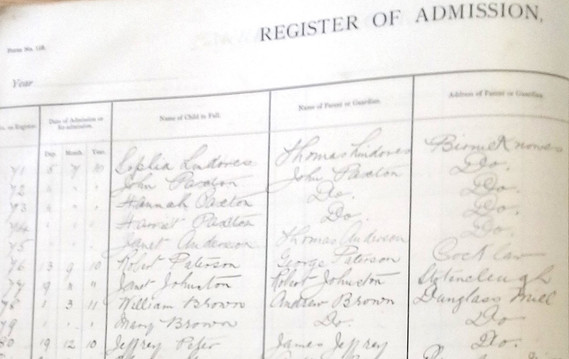 REGISTER OF ADMISSION,
Form No. 
Year
No. on Register. Date of Admission or Re-admission. Name of Child in Full. Name of Parent or Guardian. Address of Parent or Guardian.
Day. Month. Year.
71 5 7 10 Sophia Lindores Thomas Lindores Birnieknowes
72 " " " John Paxton John Paxton Do.
73 " " " Hannah Paxton Do. Do.
74 " " " Harriet Paxton Do. Do.
75 " " " Janet Anderson Thomas Anderson Do.
76 13 9 10 Robert Paterson George Paterson Cocklaw
77 9 " " Janet Johnston Robert Johnston Stotencleugh
78 1 3 11 William Brown Andrew Brown Dunglass Mill
79 " " " Mary Brown Do. Do
80 19 12 10 Jeffrey Peter James Jeffrey Do.